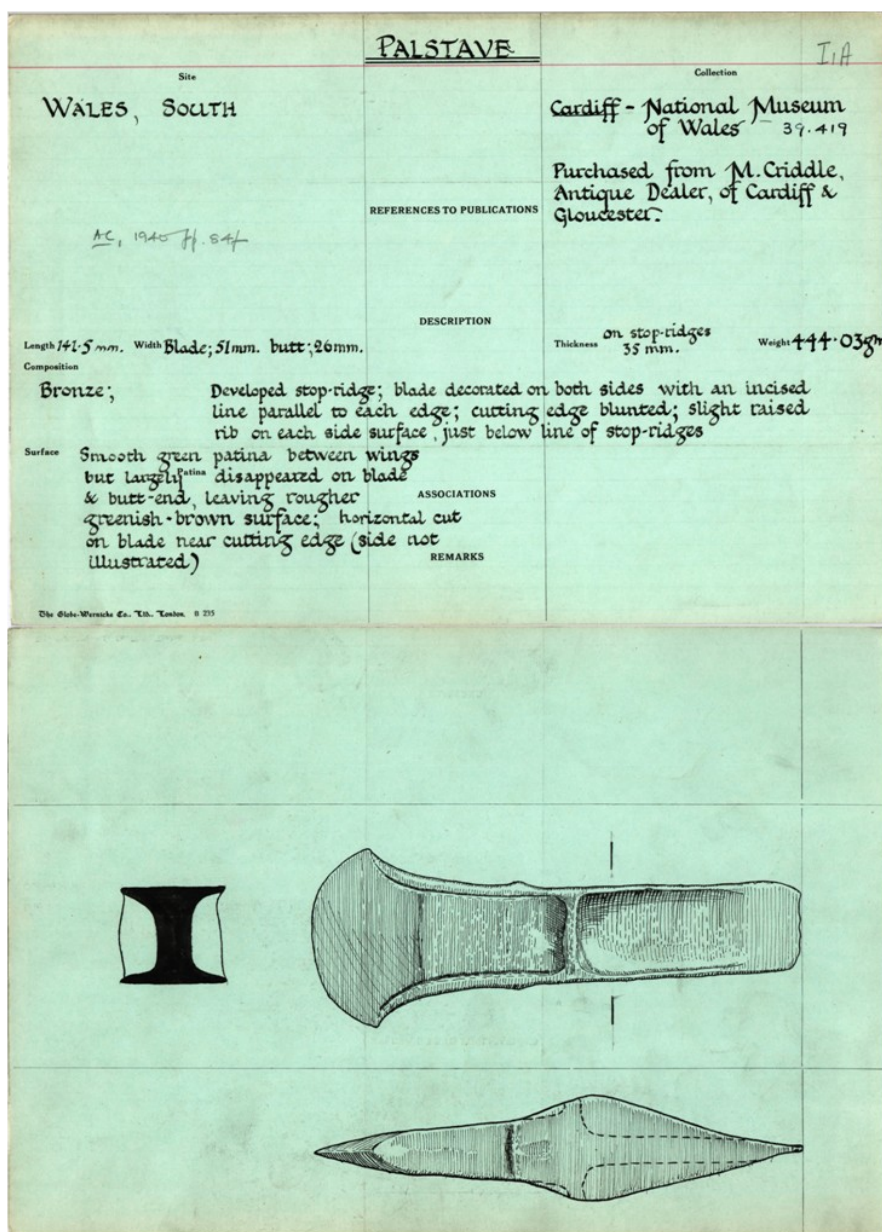 PALSTAVE
I,A
Site
Collection
WALES, SOUTH
Cardiff - National Museum
of Wales - 39.419
Purchased from M. Criddle,
Antique Dealer, of Cardiff &
Gloucester.
REFERENCES TO PUBLICATIONS
AC, 1940
DESCRIPTION
Length 141.5 mm. Width Blade; 51mm. butt; 26mm.
Thickness on stop-ridges
35 mm.
Weight 444.03gm
Composition
Bronze; Developed stop-ridge; blade decorated on both sides with an incised
line parallel to each edge; cutting edge blunted; slight raised
rib on each side surface, just below line of stop-ridges
Surface Smooth green patina between wings
but largely Patina disappeared on blade
& butt-end, leaving rougher
greenish-brown surface; horizontal cut
on blade near cutting edge (side not
illustrated)
ASSOCIATIONS
REMARKS
The Globe-Wernicke Co., Ltd., London. B 235